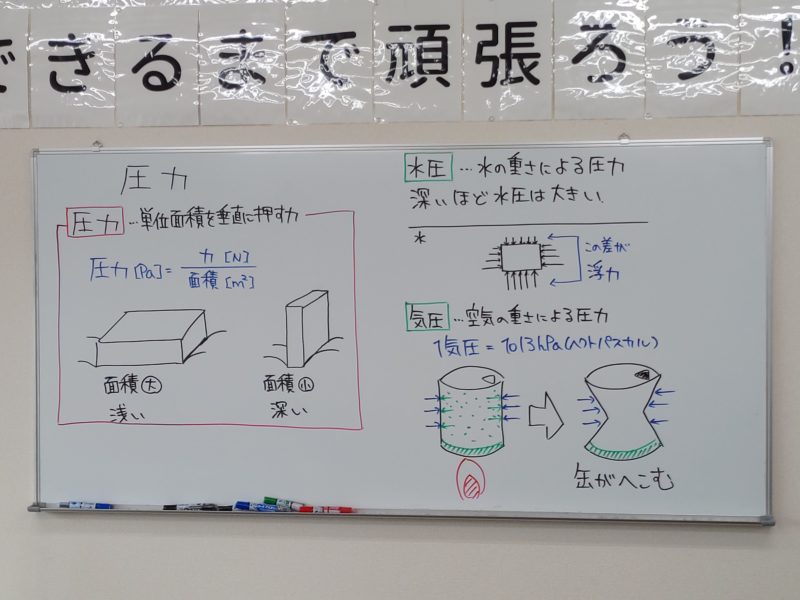 できるまで頑張ろう!
圧力
圧力…単位面積を垂直に押す力
圧力[Pa]=力[N]/面積[m²]
面積大
浅い
面積小
深い
水圧…水の重さによる圧力
深いほど水圧は大きい.
*
この差が
浮力
気圧…空気の重さによる圧力
1気圧=1013hPa(ヘクトパスカル)
缶がへこむ